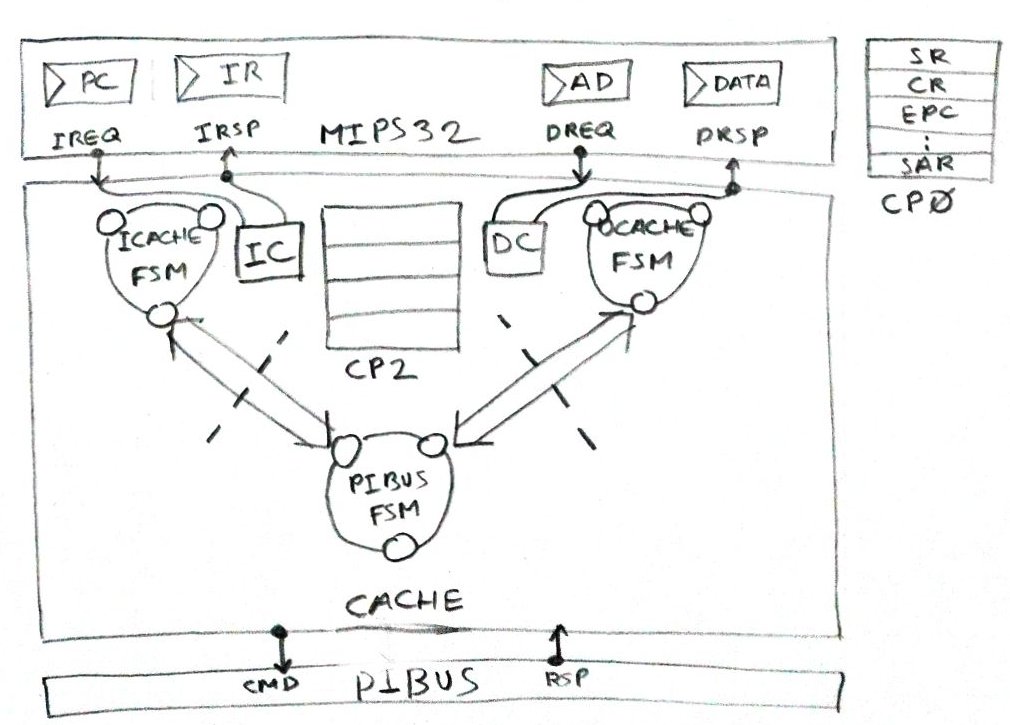 PC
IR
AD
DATA
IREQ
IRSP
MIPS32
DREQ
DRSP
SR
CR
EPC
:
SAR
CPØ
ICACHE
FSM
IC
DC
DCACHE
FSM
CP2
PIBUS
FSM
CACHE
CMD
PIBUS
RSP